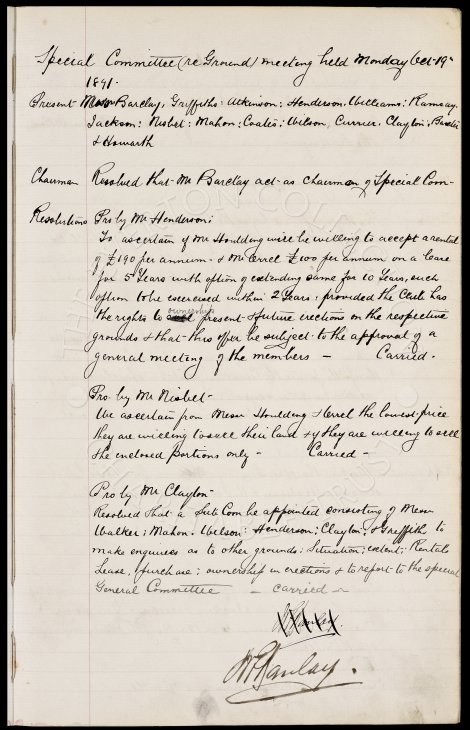 Special Committee (re Ground) meeting held Monday Oct 19th
1891.
Present Messrs Barclay, Griffiths: Atkinson; Henderson. Williams; Ramsay.
Jackson; Nisbet: Mahon; Coates; Wilson, Currier. Clayton; Baxter
& Howarth
Chairman Resolved that Mr Barclay act as Chairman of Special Com-
Resolutions Pro by Mr Henderson;
To ascertain if Mr Houlding will be willing to accept a rental
of £190 per annum & Mr Orrel £100 per annum on a lease
for 5 Years with option of extending same for 10 Years, such
option to be exercised within 2 Years: provided the Club has
ownership
the rights to present & future erections on the respective
grounds & that this offer be subject to the approval of a
general meeting of the members — Carried.
Pro by Mr Nisbet-
We ascertain from Messrs Houlding & Orrel the lowest price
they are willing to sell their land & if they are willing to sell
the enclosed portions only — Carried —
Pro by Mr Clayton-
Resolved that a Sub Com be appointed consisting of Messrs
Walker; Mahon. Wilson. Henderson; Clayton; & Griffith to
make enquiries as to other grounds: Situation; extent; Rentals
Lease, purchase; ownership in erections & to report to the special
General Committee — carried —
W R Barclay.